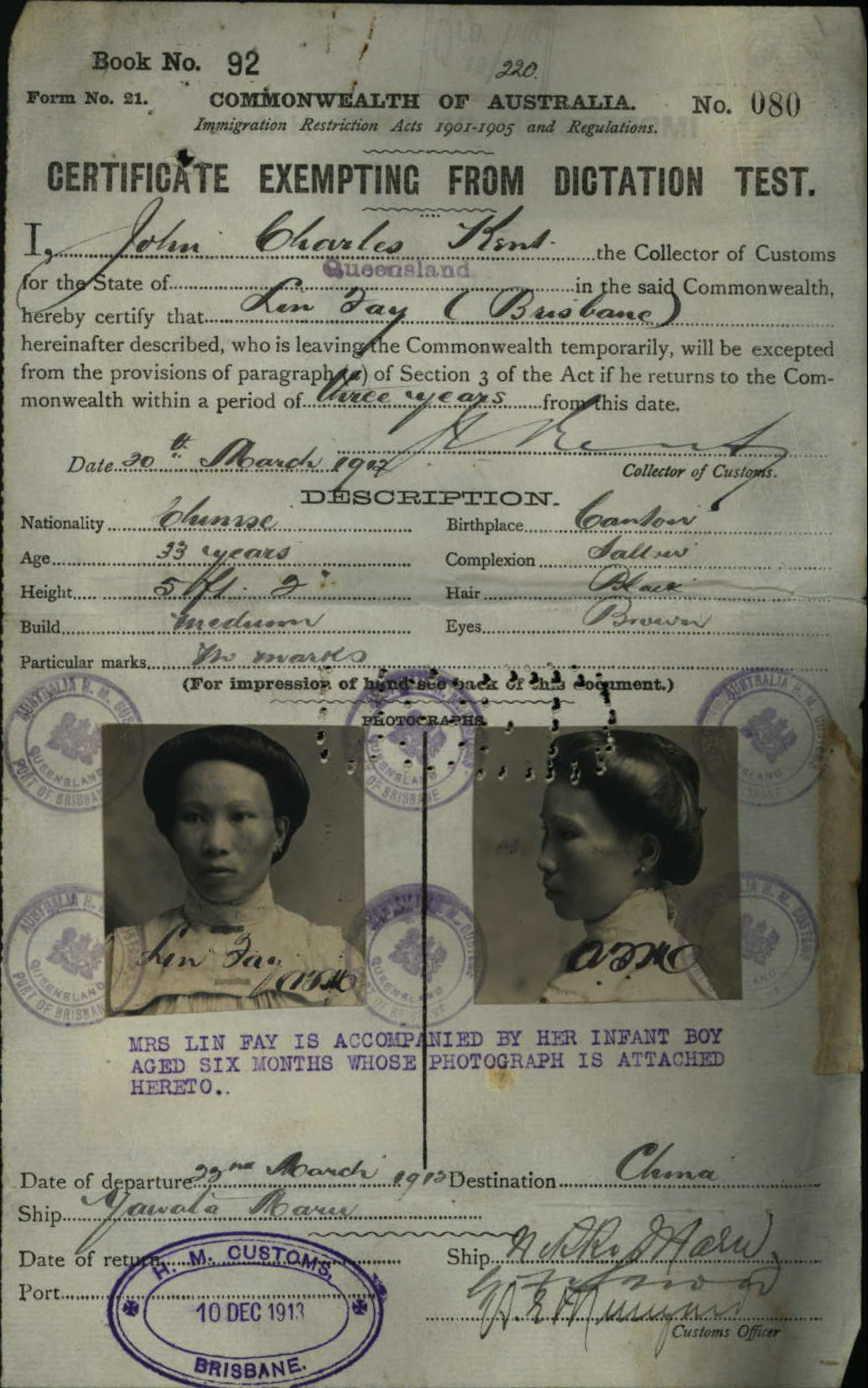 Book No. 92
220.
Form No. 21. COMMONWEALTH OF AUSTRALIA. No. 080
Immigration Restriction Acts 1901-1905 and Regulations.
CERTIFICATE EXEMPTING FROM DICTATION TEST.
I, John Charles Kent the Collector of Customs
for the State of Queensland in the said Commonwealth,
hereby certify that Lin Fay (Brisbane)
hereinafter described, who is leaving the Commonwealth temporarily, will be excepted
from the provisions of paragraph (a) of Section 3 of the Act if he returns to the Com-
monwealth within a period of three years from this date.
Date 20th March 191
Collector of Customs.
DESCRIPTION.
Nationality Chinese Birthplace Canton
Age 33 years Complexion Sallow
Height 5 ft. 2" Hair Black
Build Medium Eyes Brown
Particular marks No marks
(For impression of hand see back of this document.)
PHOTOGRAPHS.
AUSTRALIA H. M. CUSTOMS
QUEENSLAND
PORT OF BRISBANE
Lin Fay
MRS LIN FAY IS ACCOMPANIED BY HER INFANT BOY
AGED SIX MONTHS WHOSE PHOTOGRAPH IS ATTACHED
HERETO..
Date of departure 22nd March 191 Destination China
Ship Yawata Maru
Date of return Ship Nikko Maru
Port
Customs Officer
H. M. CUSTOMS,
10 DEC 1913
BRISBANE.